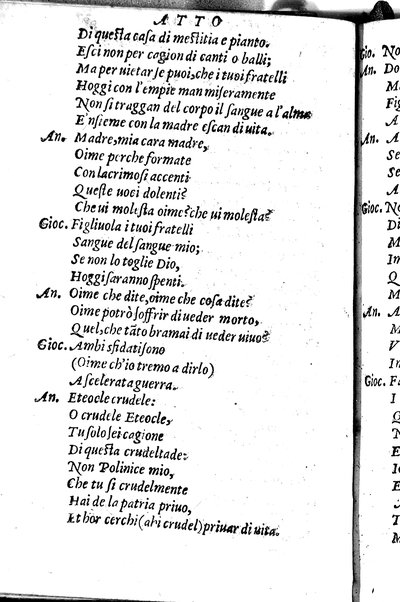 ATTO
Di questa casa di mestitia e pianto.
Esci non per cagion di canti o balli;
Ma per uietar se puoi, che i tuoi fratelli
Hoggi con l'empie man miseramente
Non si traggan del corpo il sangue a l'alma
E'nsieme con la madre escan di uita.
An. Madre, mia cara madre,
Oime perche formate
Con lacrimosi accenti
Queste uoci dolenti?
Che ui molesta oime? che ui molesta?
Gioc. Figliuola i tuoi fratelli
Sangue del sangue mio;
Se non lo toglie Dio,
Hoggi saranno spenti.
An. Oime che dite, oime che cosa dite?
Oime potrò soffrir di ueder morto,
Quel, che tãto bramai di ueder uiuo?
Gioc. Ambi sfidati sono
(Oime ch'io tremo a dirlo)
A scelerata guerra.
An. Eteocle crudele:
O crudele Eteocle,
Tu solo sei cagione
Di questa crudeltade:
Non Polinice mio,
Che tu sì crudelmente
Hai de la patria priuo,
Et hor cerchi (ahi crudel) priuar di uita.
Gioc. No
An. Do
M
Fig
A
An. A
Se
Se
A
Gioc. N
Di
M
Im
Q
An. A
M
V
In
Gioc. Fa
I
Q
N
E
Io
E
A
T
M